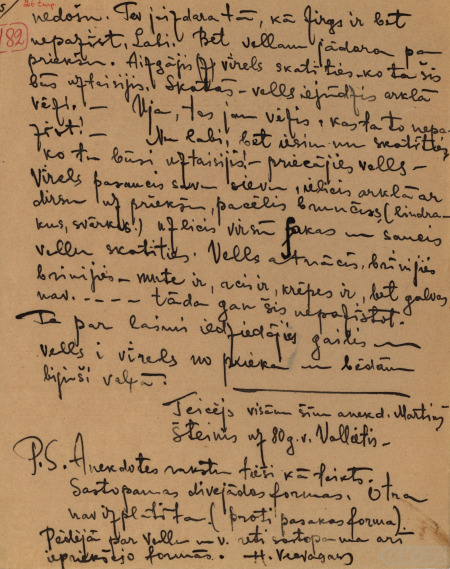 nedošu. Tā jāizdara tā, kā zirgs ir bet
182
nepazīst. Labi. Bet vellam jādara pa
priekšu. Aizgājis vīrels skatīties ko ta šis
būs uztaisījis. Skatās – vells iejūdzis arklā
vēzi. – Nja, tas jau vēzis, kas ta to nepa-
zīst! – Nu labi, bet iesim nu skatīties
ko tu būsi uztaisījis – priecājies vells –
Vīrels pasaucis savu sievu, ielicis arklā ar
dirsu uz priekšu, pacēlis brunčus (lindra-
kus, svārkus!) uzlicis virsū sakas un saucis
vellu skatīties. Vells atnācis, brīnījies
brīnījies – mute ir, acis ir, krēpes ir, bet galvas
nav. – – – – tāda gan šis nepazīstot.
Te par laimi iedziedājies gailis un
vells i vīrels no prieka un bēdām
biguši vaļā.
Teicējs visām šīm anekd. Mārtiņš
Šteins uz 80 g. v. Vallētis –
P.S. Anekdotes rakstu tieši kā teikts.
Sastopamas divējādas formas. Otra
nav izplatīta (proti pasakas forma).
Pēdējā par vellu un v. reti sastopama arī
iepriekšējo formās. H.